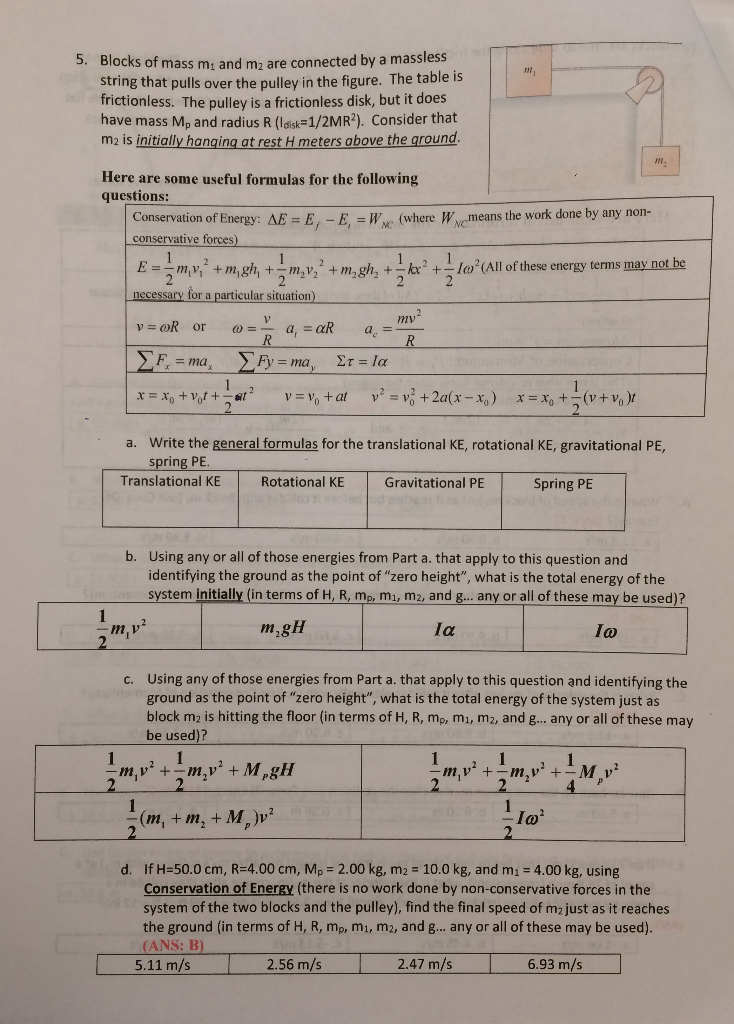 5. Blocks of mass m₁ and m₂ are connected by a massless
string that pulls over the pulley in the figure. The table is
frictionless. The pulley is a frictionless disk, but it does
have mass Mₚ and radius R (I_disk=1/2MR²). Consider that
m₂ is initially hanging at rest H meters above the ground.
m₁
m₂
Here are some useful formulas for the following
questions:
Conservation of Energy: ΔE = E_f − E_i = W_NC (where W_NC means the work done by any non-
conservative forces)
E = 1/2 m₁v₁² + m₁gh₁ + 1/2 m₂v₂² + m₂gh₂ + 1/2 kx² + 1/2 Iω² (All of these energy terms may not be
necessary for a particular situation)
v = ωR or ω = v/R a_t = αR a_c = mv²/R
∑F_x = ma_x ∑Fy = ma_y Στ = Iα
x = x₀ + v₀t + 1/2 at² v = v₀ + at v² = v₀² + 2a(x − x₀) x = x₀ + 1/2 (v + v₀)t
a. Write the general formulas for the translational KE, rotational KE, gravitational PE,
spring PE.
Translational KE Rotational KE Gravitational PE Spring PE
b. Using any or all of those energies from Part a. that apply to this question and
identifying the ground as the point of “zero height”, what is the total energy of the
system initially (in terms of H, R, mₚ, m₁, m₂, and g... any or all of these may be used)?
1/2 m₁v² m₂gH Iα Iω
c. Using any of those energies from Part a. that apply to this question and identifying the
ground as the point of “zero height”, what is the total energy of the system just as
block m₂ is hitting the floor (in terms of H, R, mₚ, m₁, m₂, and g... any or all of these may
be used)?
1/2 m₁v² + 1/2 m₂v² + MₚgH 1/2 m₁v² + 1/2 m₂v² + 1/4 Mₚv²
1/2 (m₁ + m₂ + Mₚ)v² 1/2 Iω²
d. If H=50.0 cm, R=4.00 cm, Mₚ = 2.00 kg, m₂ = 10.0 kg, and m₁ = 4.00 kg, using
Conservation of Energy (there is no work done by non-conservative forces in the
system of the two blocks and the pulley), find the final speed of m₂ just as it reaches
the ground (in terms of H, R, mₚ, m₁, m₂, and g... any or all of these may be used).
(ANS: B)
5.11 m/s 2.56 m/s 2.47 m/s 6.93 m/s